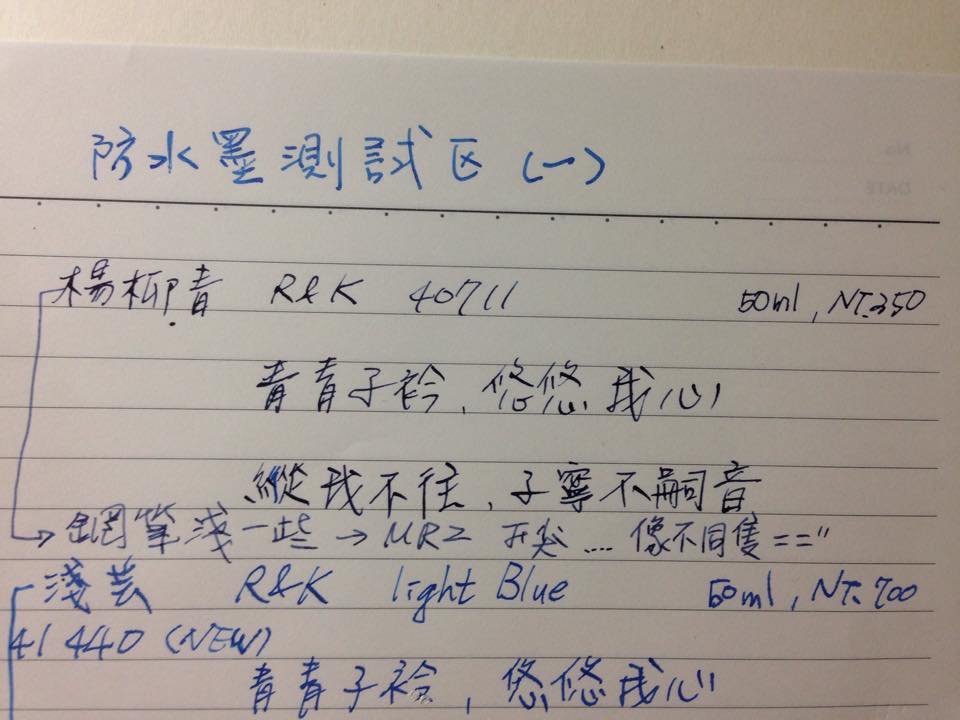 防水墨測試区(一)
No.
DATE
楊柳青 R&K 40711 50ml, NT.350
青青子衿,悠悠我心
縱我不往,子寧不嗣音
鋼筆淺一些→MR2 F尖....像不同隻=="
淺芸 R&K light Blue 50ml, NT.700
41440 (NEW)
青青子衿,悠悠我心